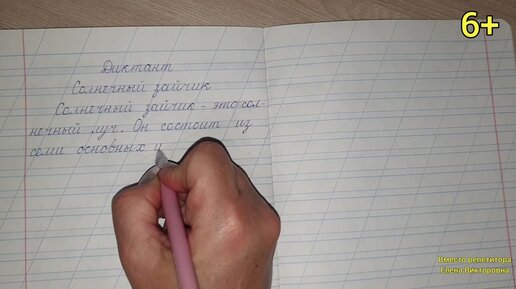 6+
Диктант
Солнечный зайчик
Солнечный зайчик - это сол-
нечный луч. Он состоит из
семи основных
Вместо репетитора
Елена Викторовна